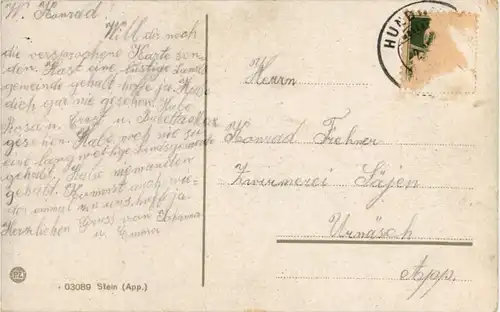 W. Konrad
Will dir noch
die versprochene Karte sen-
den. Hast eine lustige Lands
gemeinde gehabt hoffe ja. Habe
dich gar nie gesehen. Habe
Rosa u. Ernst u.
gesehen. Habe noch nie so
eine langweilige Landsgemeinde
gehabt. Habe niemanden
gehabt. Kommst auch wie-
der einmal zu uns hoffe ja.
Herzlichen Gruss von Johanna
u. Emma
HUND
Herrn
Konrad Frehner
Zwirnerei Säjen
Urnäsch
App.
PZ
03089 Stein (App.)